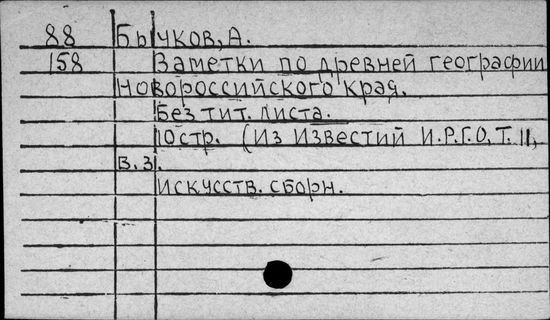 88 Бычков, А.
158 Заметки по древней географии
Новороссийского края.
Без тит. листа.
10 стр. (Из Известий И.Р.Г.О, Т. 11,
в. 3).
искусств. сборн.